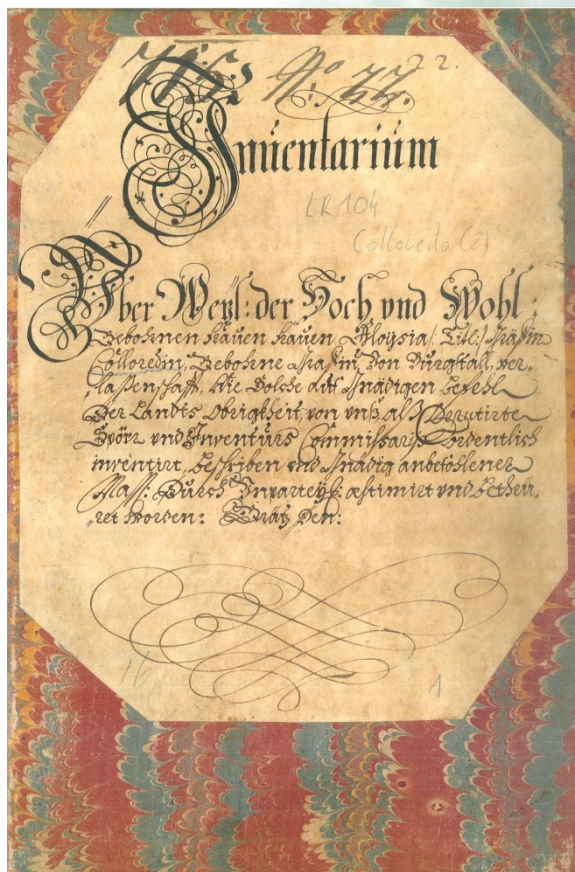 N: 77. 72.
Inuentarium
LR 104
Colloredo (ö)
Über Weyl: der Hoch vnd Wohl:
Gebohrnen Frauen Frauen Aloysia /: Titl: / Gräfin
Colloredin, Gebohrne Gräfin Von Purgstall, Ver,
lassenschafft, Wie Solche auf Gnädigen Befehl
Der Landts Obrigkheit, von vnß alß Deputirte
Spörr vnd Inventurs Commissarÿ Ordentlich
inventirt, beschriben vnd Gnädig anbefohlener
Mass: Durch Inparteÿs: æstimirt vnd betheü,
ret worden: Gräz Den:
16
1